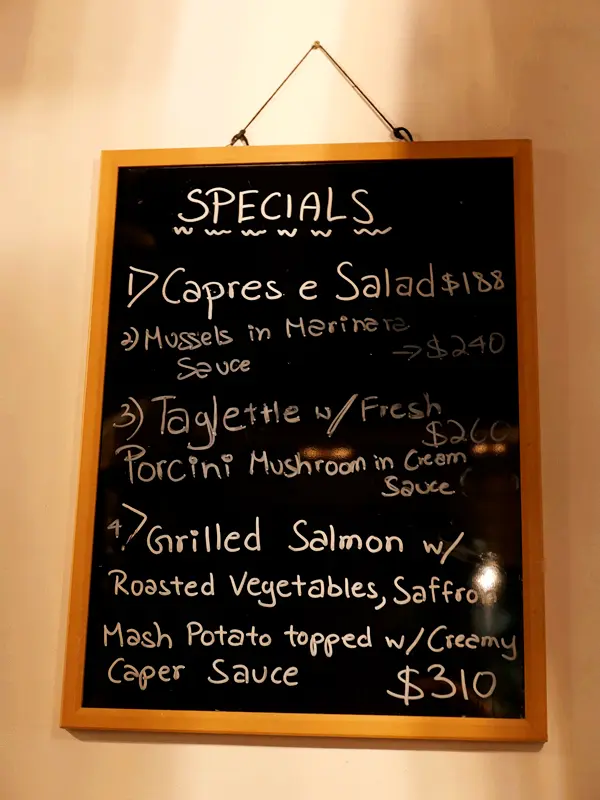 SPECIALS
1) Caprese Salad $188
2) Mussels in Marinara
Sauce → $240
3) Taglettle w/ Fresh
$260
Porcini Mushroom in Cream
Sauce
4) Grilled Salmon w/
Roasted Vegetables, Saffron
Mash Potato topped w/ Creamy
Caper Sauce $310